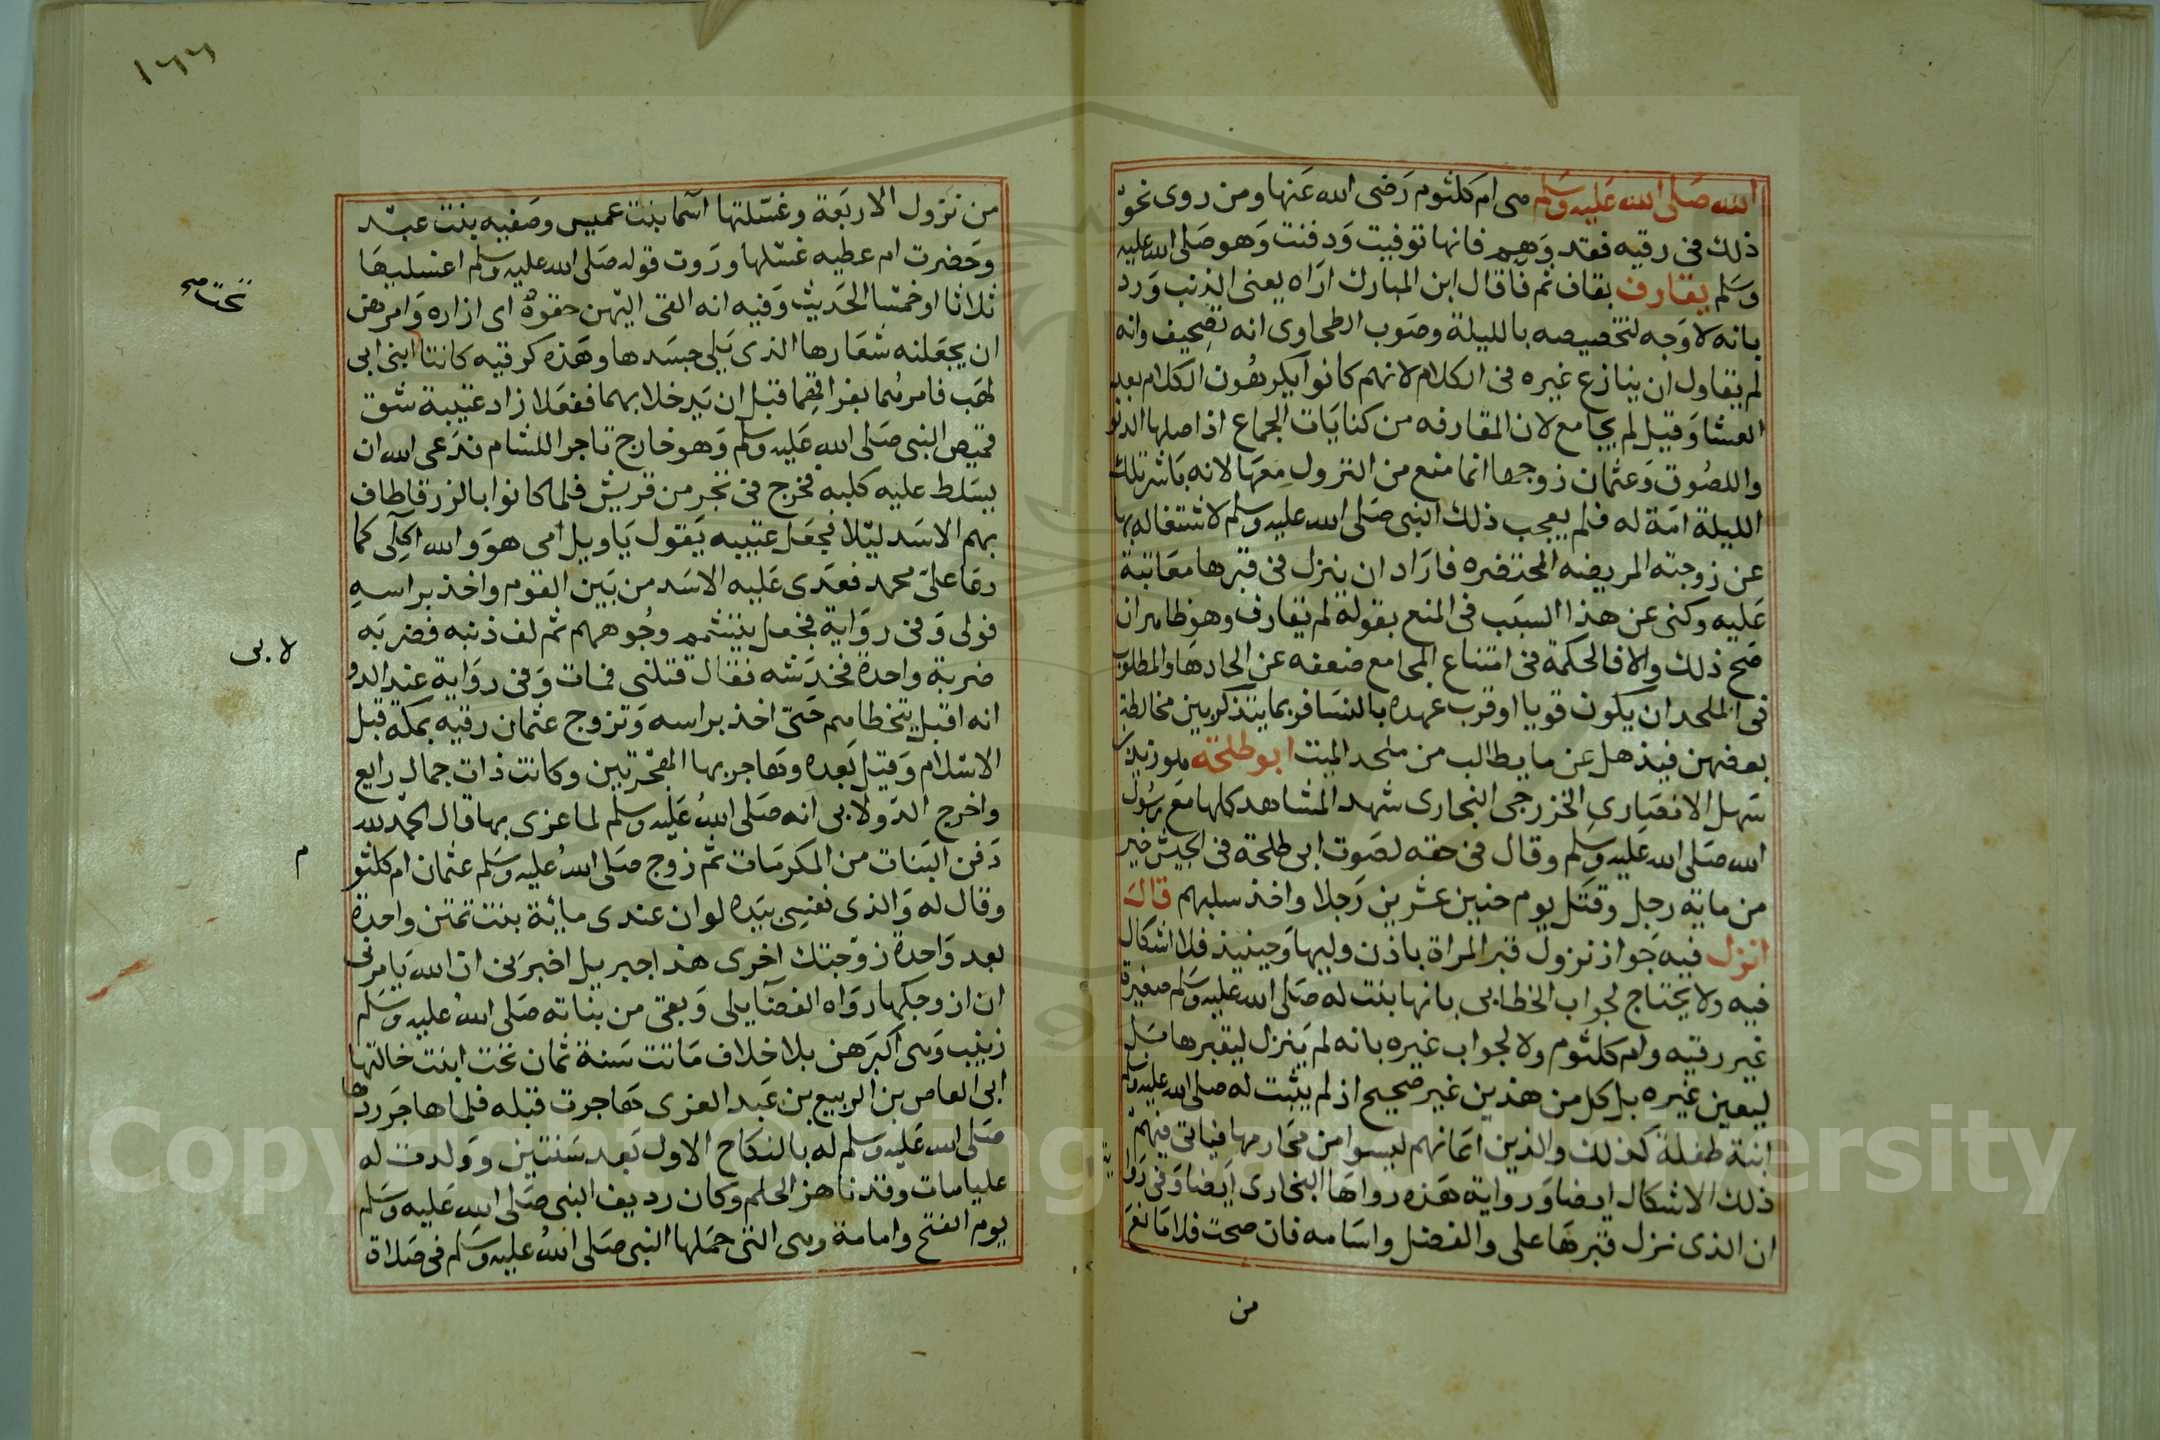 الله صلى الله عليه وسلم هى ام كلثوم رضى الله عنها ومن روى نحو
ذلك فى رقيه فقد وهم فانها توفيت ودفنت وهو صلى الله عليه
وسلم يقارف بقاف ثم فا قال ابن المبارك اراه يعنى الذنب ورد
بانه لا وجه لتخصيصه بالليلة وصوب الطحاوى انه تصحيف وانه
لم يقاول ان ينازع غيره فى الكلام لانهم كانوا يكرهون الكلام بعد
العشا وقيل لم يجامع لان المقارفه من كنايات الجماع اذ اصلها الدنو
واللصوق وعثمان زوجها انما منع من النزول معها لانه باشر تلك
الليلة امة له فلم يعجب ذلك النبى صلى الله عليه وسلم لاشتغاله بها
عن زوجته المريضه المحتضره فاراد ان ينزل فى قبرها معاتبة
عليه وكنى عن هذا السبب فى المنع بقوله لم يقارف وهو ظاهر ان
صح ذلك والا فالحكمة فى امتناع المجامع ضعفه عن الحادها والمطلوب
فى الملحد ان يكون قويا او قرب عهده بالنسا فربما يتذكر بين مخالطة
بعضهن فيذهل عن ما يطالب من ملحد الميت ابو طلحة هو زيد بن
سهل الانصارى الخزرجى النجارى شهد المشاهد كلها مع رسول
الله صلى الله عليه وسلم وقال فى حقه لصوت ابى طلحة فى الجيش خير
من ماية رجل وقتل يوم حنين عشرين رجلا واخذ سلبهم قال
انزل فيه جواز نزول قبر المراة باذن وليها وحينيذ فلا اشكال
فيه ولا يحتاج لجواب الخطابى بانها بنت له صلى الله عليه وسلم صغيرة
غير رقيه وام كلثوم ولا لجواب غيره بانه لم ينزل ليقبرها بل
ليعين غيره بل كل من هذين غير صحيح اذ لم يثبت له صلى الله عليه وسلم
ابنة طفلة كذلك والذين اعانهم ليسوا من محارمها فياتى فيهم
ذلك الاشكال ايضا ورواية هذه رواها البخارى ايضا وفى رواية
ان الذى نزل قبرها على والفضل واسامه فان صحت فلا مانع
من
١٦٦
من نزول الاربعة وغسلتها اسما بنت عميس وصفيه بنت عبد
وحضرت ام عطيه غسلها وروت قوله صلى الله عليه وسلم اغسليها
ثلاثا او خمسا الحديث وفيه انه القى اليهن حقوه اى ازاره وامرهن
ان يجعلنه شعارها الذى يلى جسدها وهذه كرقيه كانتا ابنى ابى
لهب فامرهما بفراقهما قبل ان يدخلا بهما ففعلا زاد عتيبة شق
قميص النبى صلى الله عليه وسلم وهو خارج تاجرا للشام فدعى الله ان
يسلط عليه كلبه فخرج فى نفر من قريش فلما كانوا بالزرقا طاف
بهم الاسد ليلا فجعل عتيبه يقول يا ويل امى هو والله اكلى كما
دعا على محمد فعدى عليه الاسد من بين القوم واخذ براسه
فولى وفى رواية فجعل يتشمم وجوههم ثم لف ذنبه فضربه
ضربة واحدة فخدشه فقال قتلنى فمات وفى رواية عند الدو
انه اقبل يتخطاهم حتى اخذ براسه وتزوج عثمان رقيه بمكة قبل
الاسلام وقيل بعده وهاجر بها الهجرتين وكانت ذات جمال رايع
واخرج الدولابى انه صلى الله عليه وسلم لما عزى بها قال الحمد لله
دفن البنات من المكرمات ثم زوج صلى الله عليه وسلم عثمان ام كلثو
وقال له والذى نفسى بيده لو ان عندى ماية بنت تمتن واحدة
بعد واحدة زوجتك اخرى هذا جبريل اخبرنى ان الله يامرنى
ان ازوجكها رواه الفضايلى وبقى من بناته صلى الله عليه وسلم
زينب وهى اكبرهن بلا خلاف ماتت سنة ثمان تحت ابنت خالتها
ابى العاص بن الربيع بن عبد العزى هاجرت قبله فلما هاجر ردها
صلى الله عليه وسلم له بالنكاح الاول بعد سنتين وولدت له
عليا مات وقد ناهز الحلم وكان رديف النبى صلى الله عليه وسلم
يوم الفتح وامامة وهى التى حملها النبى صلى الله عليه وسلم فى صلاة
تحت صح
لابى
م
Copyright © King Saud University